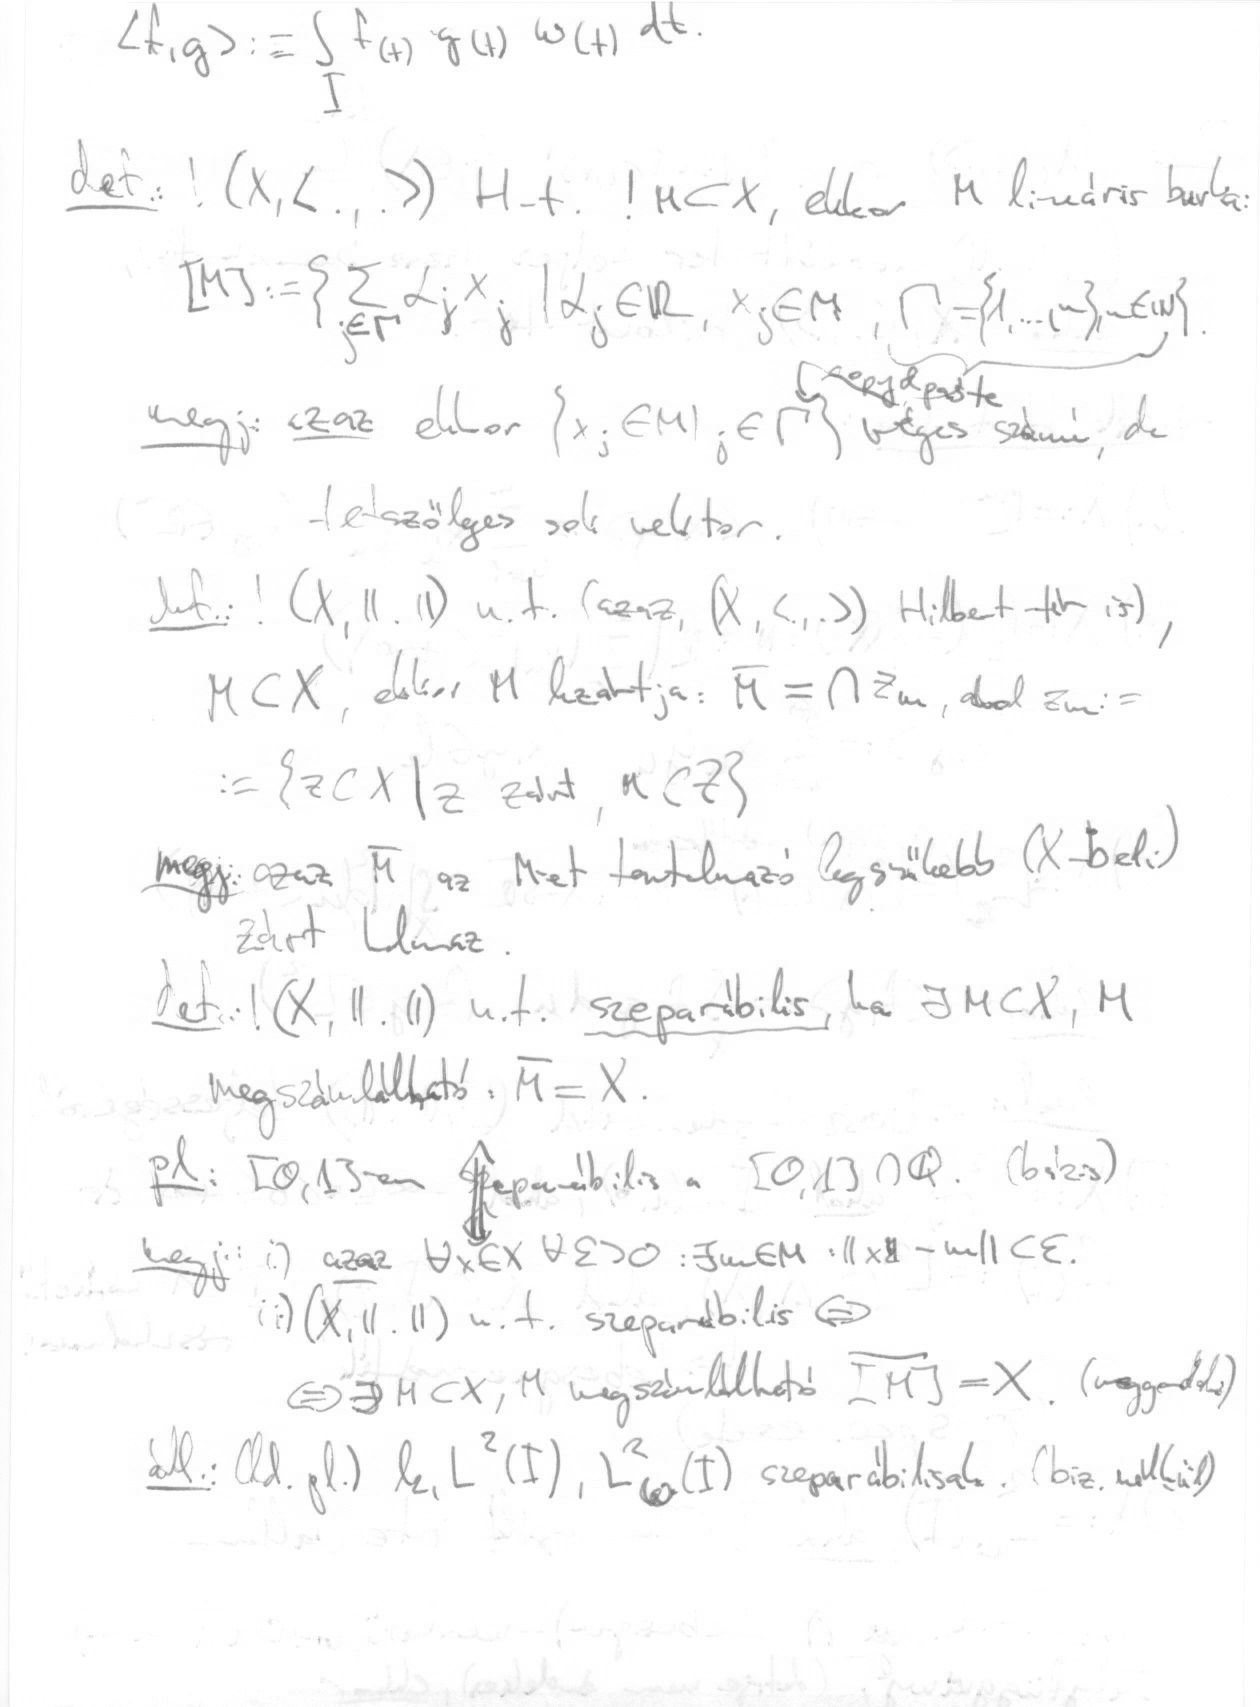 <f,g> := ∫_I f(t) g(t) w(t) dt.
def.: ! (X, <.,.>) H-t. ! M⊂X, ekkor M lineáris burka:
[M] := { Σ_{j∈Γ} α_j x_j | α_j∈ℝ, x_j∈M, Γ={1,...,n}, n∈ℕ }.
copy&paste
megj: azaz ekkor {x_j∈M | j∈Γ} véges számú, de
tetszőleges sok vektor.
def.: ! (X, ||.||) n.t. (azaz, (X, <.,.>) Hilbert-tér is),
M⊂X, ekkor M lezártja: M̄ = ∩ Z_m, ahol Z_m :=
:= {Z⊂X | Z zárt, M⊂Z}
megj: azaz M̄ az M-et tartalmazó legszűkebb (X-beli)
zárt halmaz.
def.: ! (X, ||.||) n.t. szeparábilis, ha ∃ M⊂X, M
megszámlálható: M̄ = X.
pl: [0,1]-en szeparábilis a [0,1]∩ℚ. (bázis)
megj: i) azaz ∀x∈X ∀ε>0 : ∃m∈M : ||x - m|| < ε.
ii) (X, ||.||) n.t. szeparábilis ⇔
⇔ ∃ M⊂X, M megszámlálható \overline{[M]} = X. (meggondolni)
áll.: (ld. pl.) l₂, L²(I), L²_w(I) szeparábilisak. (biz. nélkül)